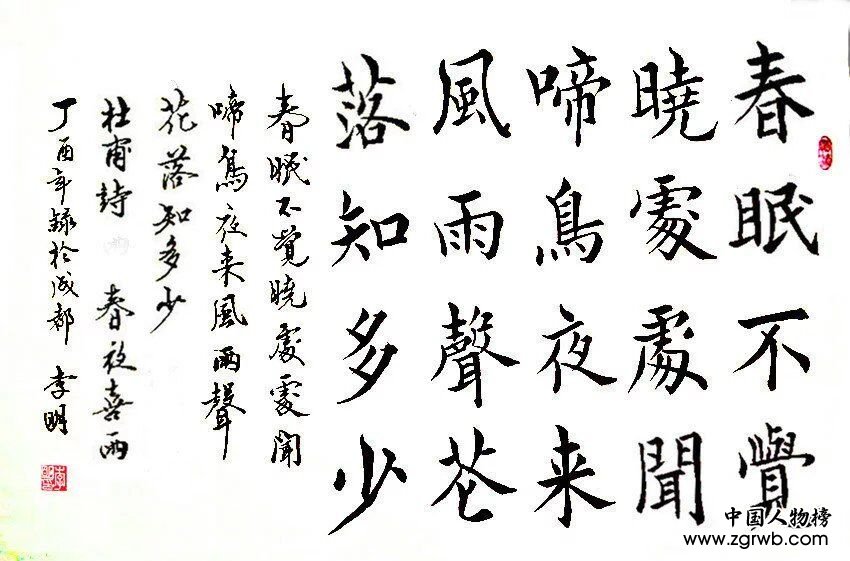 春眠不覺
曉處處聞
啼鳥夜来
風雨聲花
落知多少
春眠不覺曉處處聞
啼鳥夜来風雨聲
花落知多少
杜甫詩 春夜喜雨
丁酉年録於成都 李明
中国人物榜
www.zgrwb.com